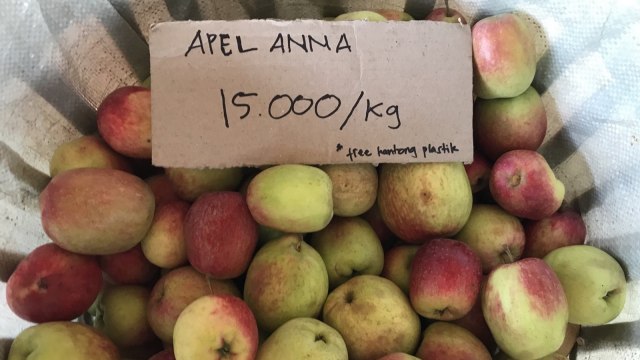 APEL ANNA
15.000/kg
* free kantong plastik